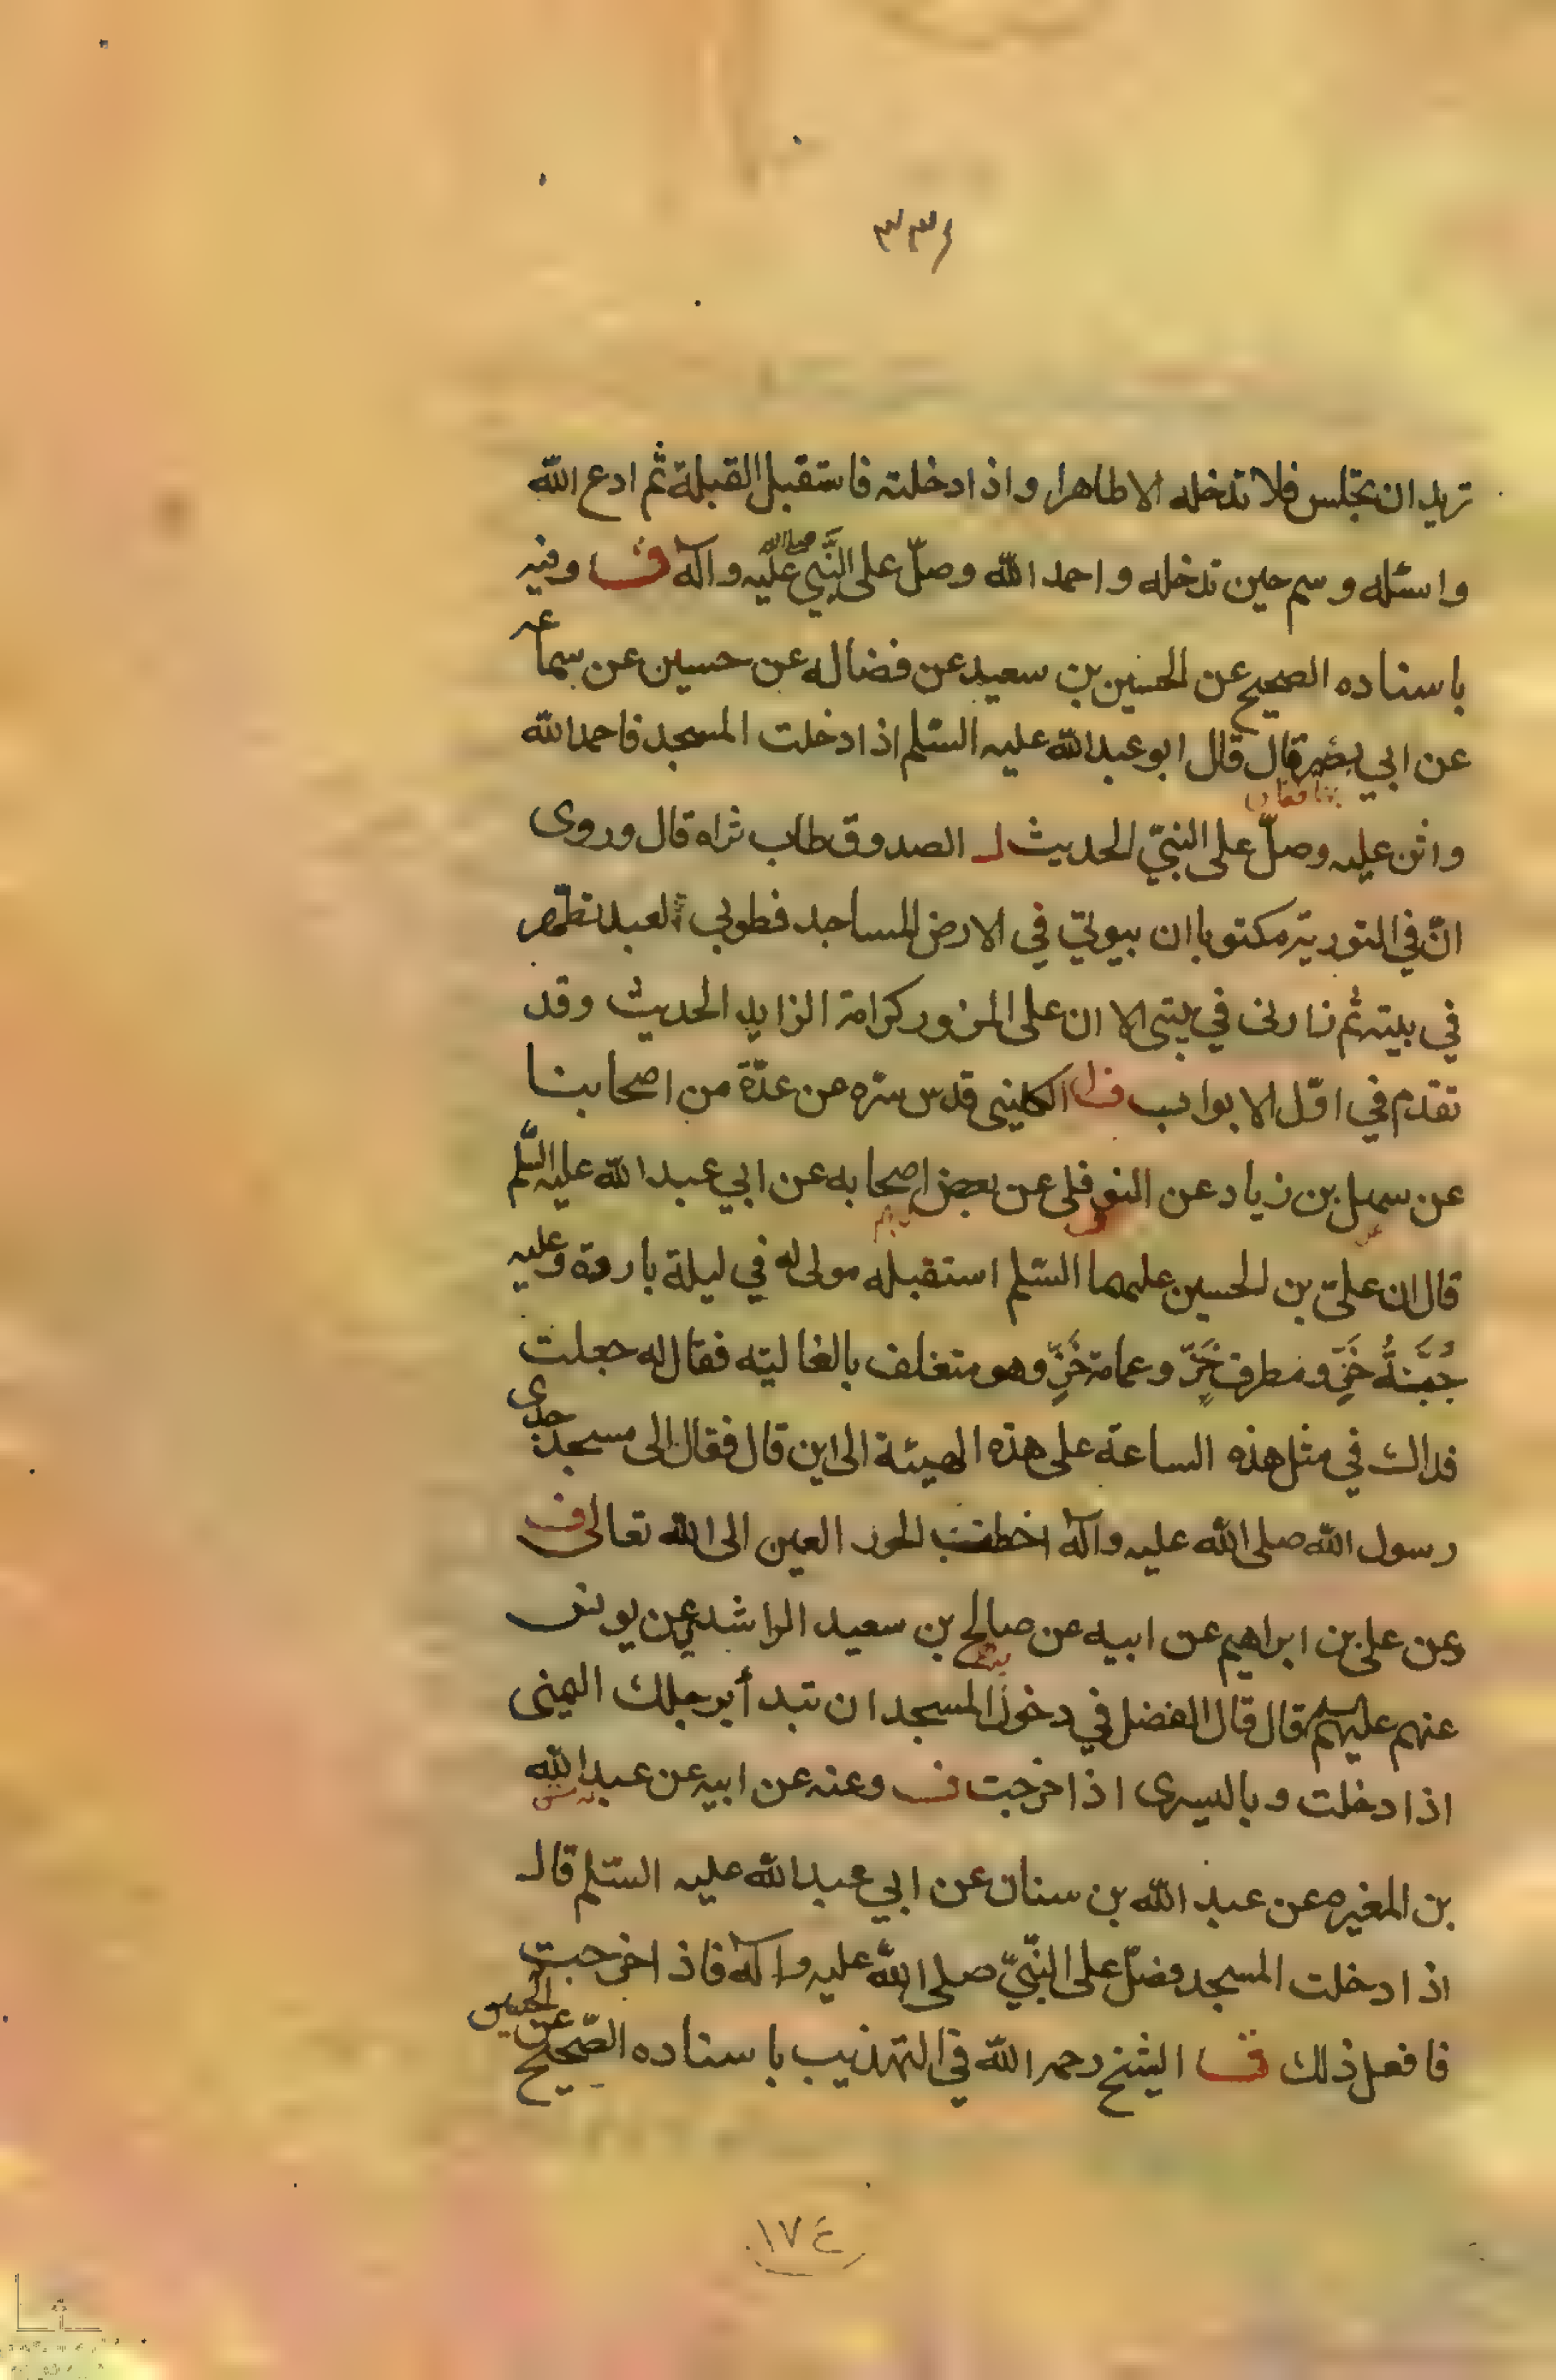 ٣٣٤
تريد ان تجلس فلا تدخله الا طاهرا واذا دخلته فاستقبل القبلة ثم ادع الله
واسئله وسم حين تدخله واحمد الله وصلّ على النَّبي صلى الله عليه وآله ف وفيه
باسناده الصحيح عن الحسين بن سعيد عن فضاله عن حسين عن سماعه
عن ابي بصير قال قال ابو عبد الله عليه السّلم اذا دخلت المسجد فاحمد الله
واثن عليه وصلّ على النبيّ الحديث لـ الصدوق طاب ثراه قال وروى
انّ في التورية مكتوبا ان بيوتي في الارض المساجد فطوبى لعبد تطهّر
في بيته ثم زارنى في بيتى الا ان على المزور كرامة الزاير الحديث وقد
تقدم في اوّل الابواب ف الكلينى قدس سّره عن عدّة من اصحابنا
عن سهل بن زياد عن النوفلى عن بعض اصحابه عن ابي عبد الله عليه السّلم
قال ان علىّ بن الحسين عليهما السّلم استقبله مولى له في ليلة باردة وعليه
جُبَّةُ خَزٍّ ومطرف خَزّ وعمامة خَزٍّ وهو متغلف بالغاليته فقال له جعلت
فداك في مثل هذه الساعة على هذه الهيئة الى اين قال فقال الى مسجد جدى
رسول الله صلى الله عليه وآله اخطب الحور العين الى الله تعالى ف
وعن على بن ابراهيم عن ابيه عن صالح بن سعيد الراشدي عن يونس
عنهم عليهم السلم قال قال الفضل في دخول المسجد ان تبدأ برجلك اليمنى
اذا دخلت وباليسرى اذا خرجت ف وعنه عن ابيه عن عبد الله
بن المغيره عن عبد الله بن سنان عن ابي عبد الله عليه السّلم قال
اذا دخلت المسجد فصلّ على النّبيّ صلى الله عليه وآله فاذا خرجت
فافعل ذلك ف الشيخ رحمه الله في التهذيب باسناده الصّحيح عن الحسين
١٧٤